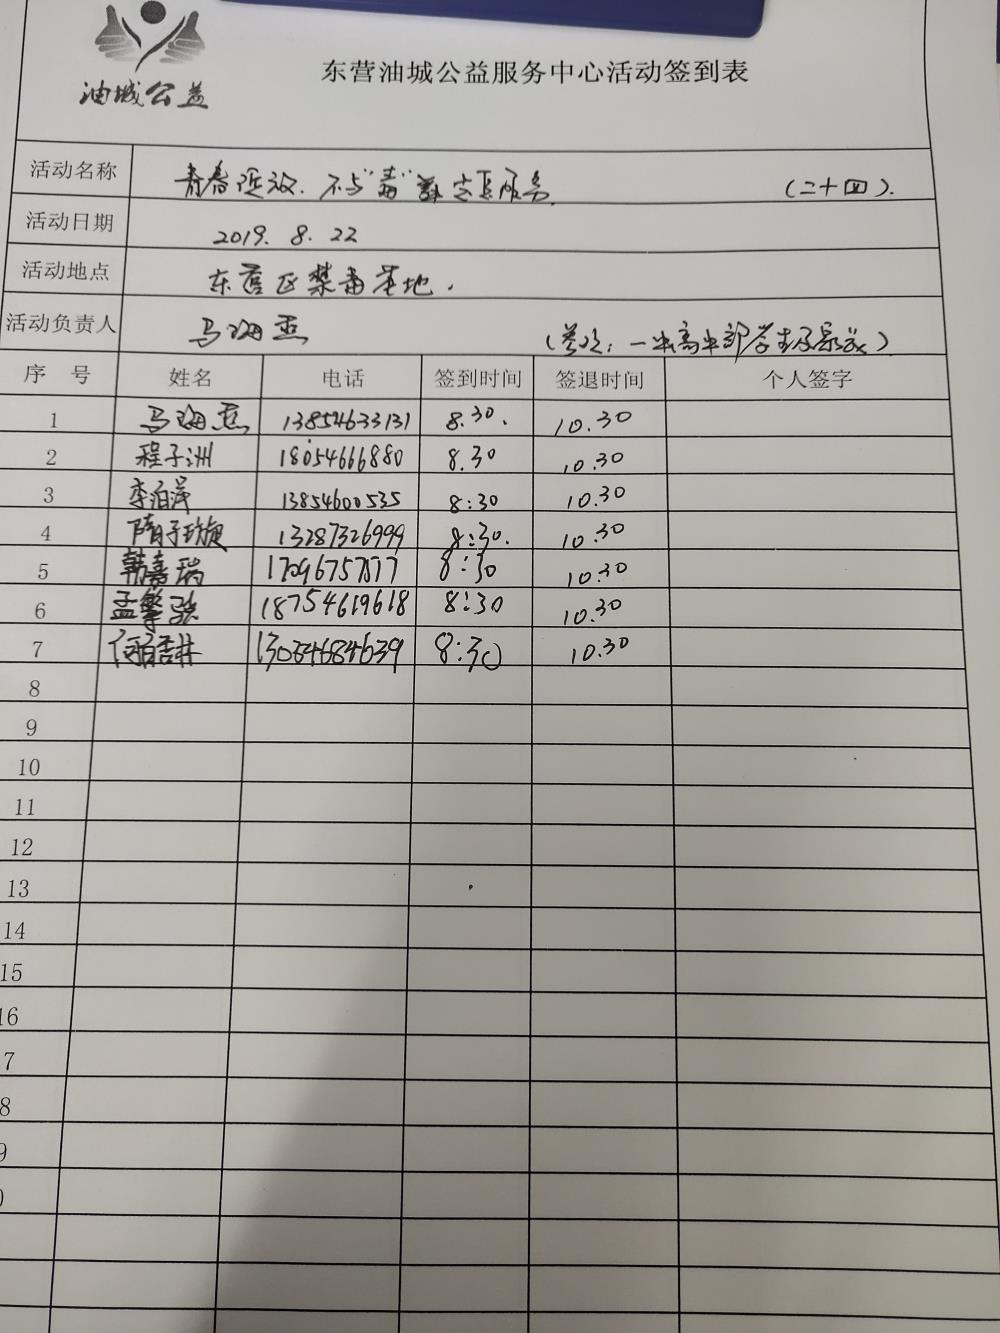 油城公益
东营油城公益服务中心活动签到表
活动名称 青春 不与"毒" 服务 (二十四).
活动日期 2019. 8. 22
活动地点 东营区禁毒基地.
活动负责人 马海燕
序 号 姓名 电话 签到时间 签退时间 个人签字
1 马海燕 13854633131 8.30. 10.30
2 程子洲 18054666880 8.30 10.30
3 李泊萍 13854600535 8:30 10.30
4 隋子璇 13287326999 8:30. 10.30
5 韩嘉瑞 8:30 10.30
6 孟擎 18754619618 8:30 10.30
7 8:30 10.30
8
9
10
11
12
13
14
15
16
7
8
9